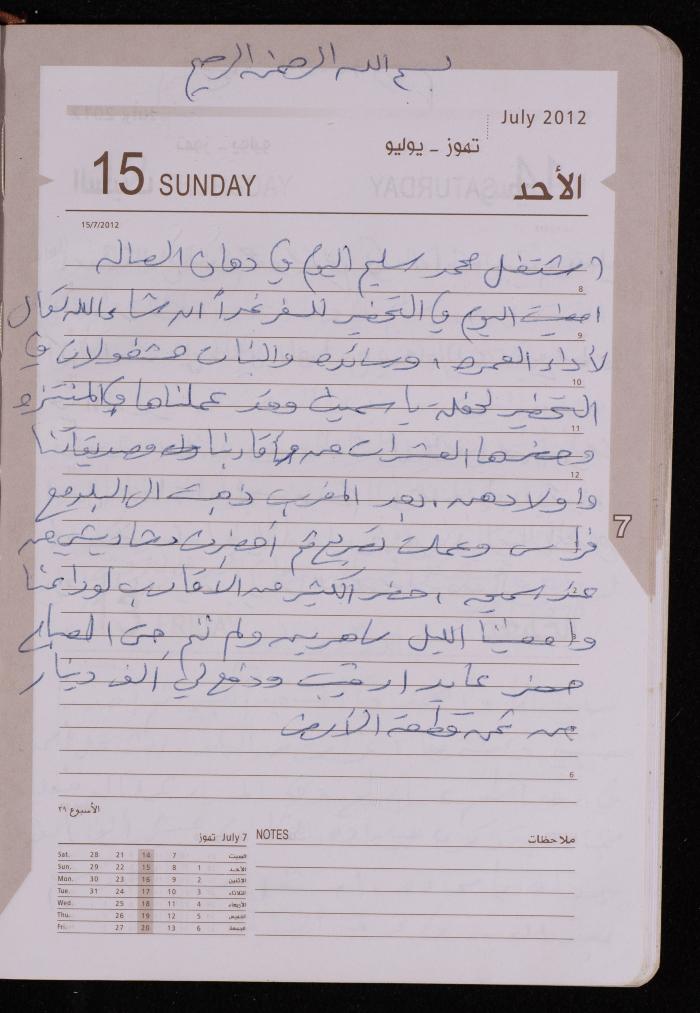 بسم الله الرحمن الرحيم
July 2012
تموز - يوليو
15 SUNDAY
الأحد
15/7/2012
اشتغل محمد سليم اليوم في دهان الصاله
8
امضيت اليوم في التحضير للسفر غداً ان شاء الله تعالى
9
لأداء العمره ، وسائده والبنات مشغولات في
10
التحضير لحفلة ياسمين وقد عملناها في المنتزه
11
وحضرها العشرات من أقاربنا وصديقاتنا
12
واولادهن ، بعد المغرب ذهبت الى البلد مع
7
فراس وعملت تصريح ثم احضرت دشاديش من
عند سميح ، حضر الكثير من الأقارب لوداعنا
وامضينا الليل ساهرين ولم ننم حتى الصباح
حضر عايد ودفع لي ألف دينار
من ثمن قطعة الأرض
6
الأسبوع ٢٩
July 7 تموز
Sat. 28 21 14 7 السبت
Sun. 29 22 15 8 1 الأحد
Mon. 30 23 16 9 2 الاثنين
Tue. 31 24 17 10 3 الثلاثاء
Wed. 25 18 11 4 الأربعاء
Thu. 26 19 12 5 الخميس
Fri. 27 20 13 6 الجمعة
NOTES
ملاحظات